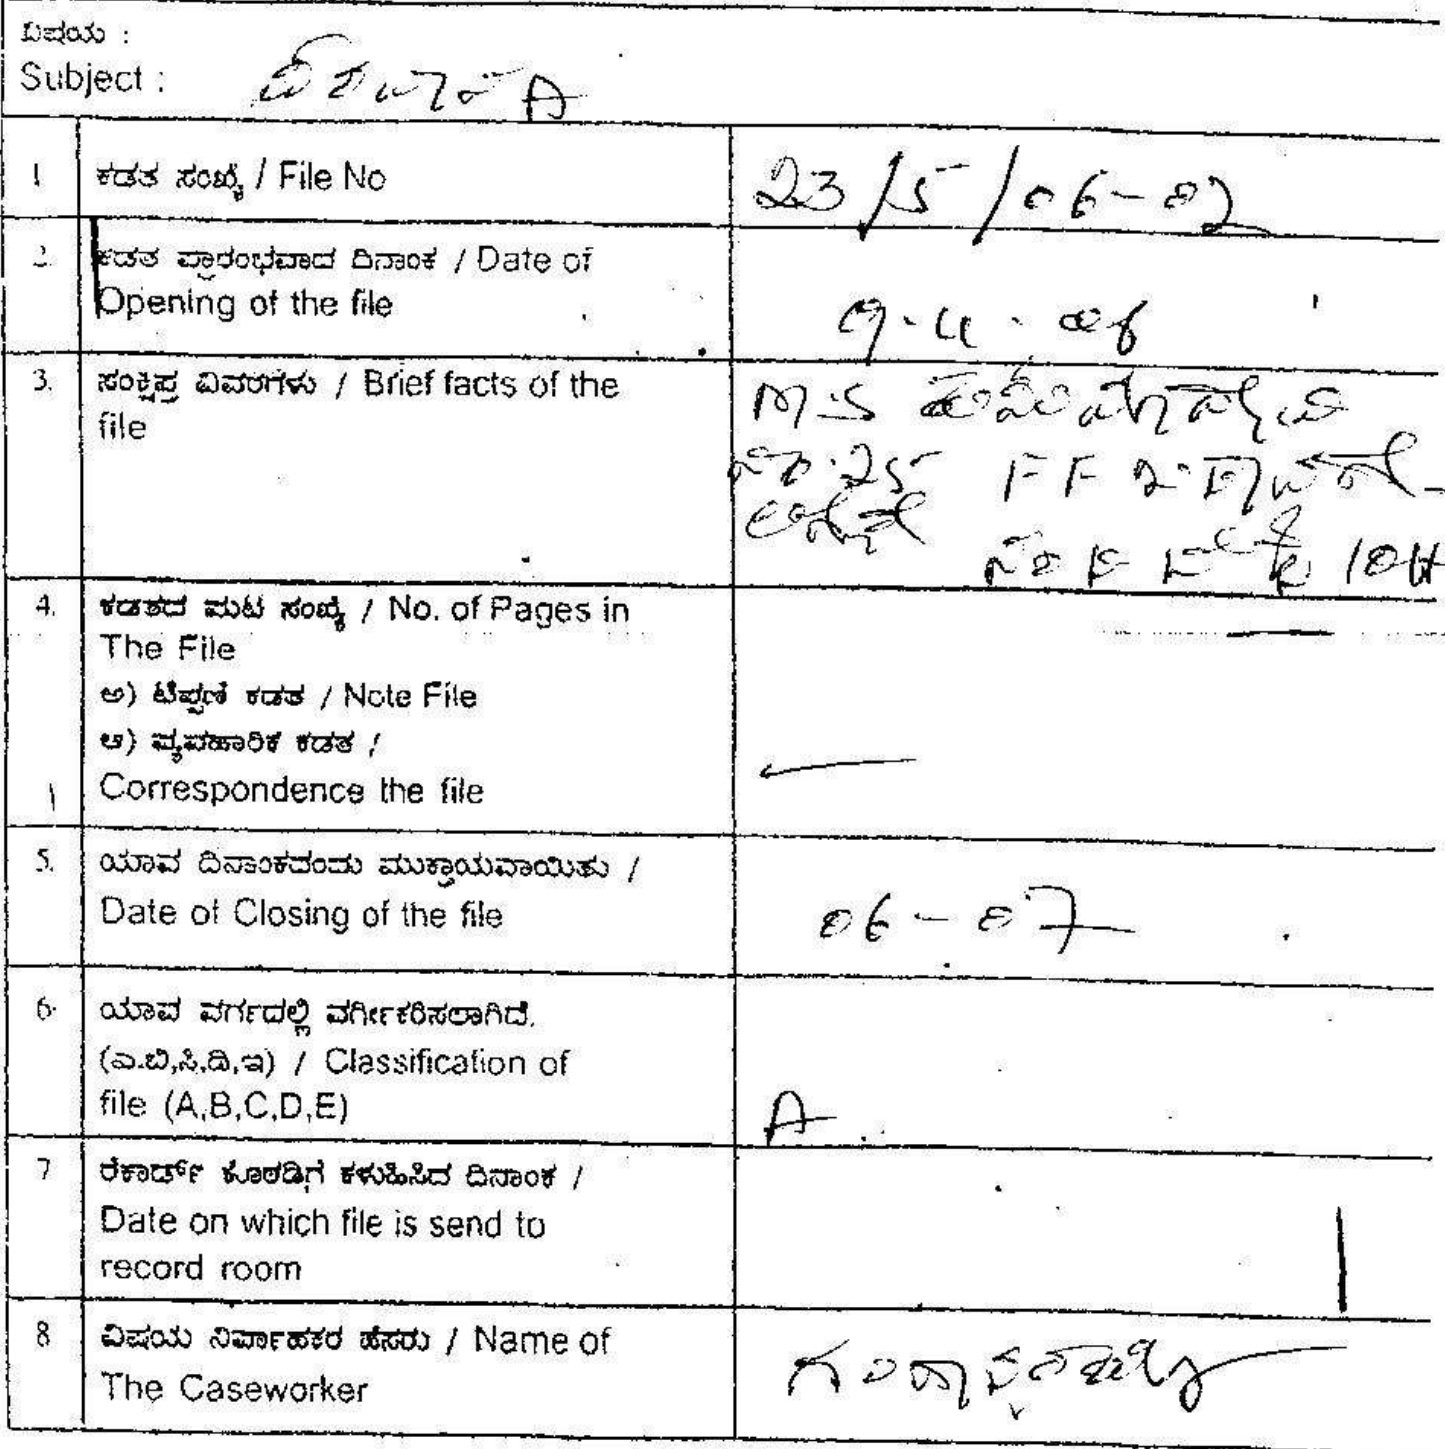 ವಿಷಯ :
Subject : A
1 ಕಡತ ಸಂಖ್ಯೆ / File No 23/5/06-07
2. ಕಡತ ಪ್ರಾರಂಭವಾದ ದಿನಾಂಕ / Date of
Opening of the file 9-4-06
3. ಸಂಕ್ಷಿಪ್ತ ವಿವರಗಳು / Brief facts of the M.S
file 25 FF
104
4. ಕಡತದ ಪುಟ ಸಂಖ್ಯೆ / No. of Pages in
The File
ಅ) ಟಿಪ್ಪಣಿ ಕಡತ / Note File
ಆ) ವ್ಯವಹಾರಿಕ ಕಡತ /
Correspondence the file
5. ಯಾವ ದಿನಾಂಕದಂದು ಮುಕ್ತಾಯವಾಯಿತು /
Date of Closing of the file 06-07
6. ಯಾವ ವರ್ಗದಲ್ಲಿ ವರ್ಗೀಕರಿಸಲಾಗಿದೆ.
(ಎ.ಬಿ,ಸಿ,ಡಿ,ಇ) / Classification of
file (A,B,C,D,E) A
7 ರೆಕಾರ್ಡ್ ಕೊಠಡಿಗೆ ಕಳುಹಿಸಿದ ದಿನಾಂಕ /
Date on which file is send to
record room
8 ವಿಷಯ ನಿರ್ವಾಹಕರ ಹೆಸರು / Name of
The Caseworker